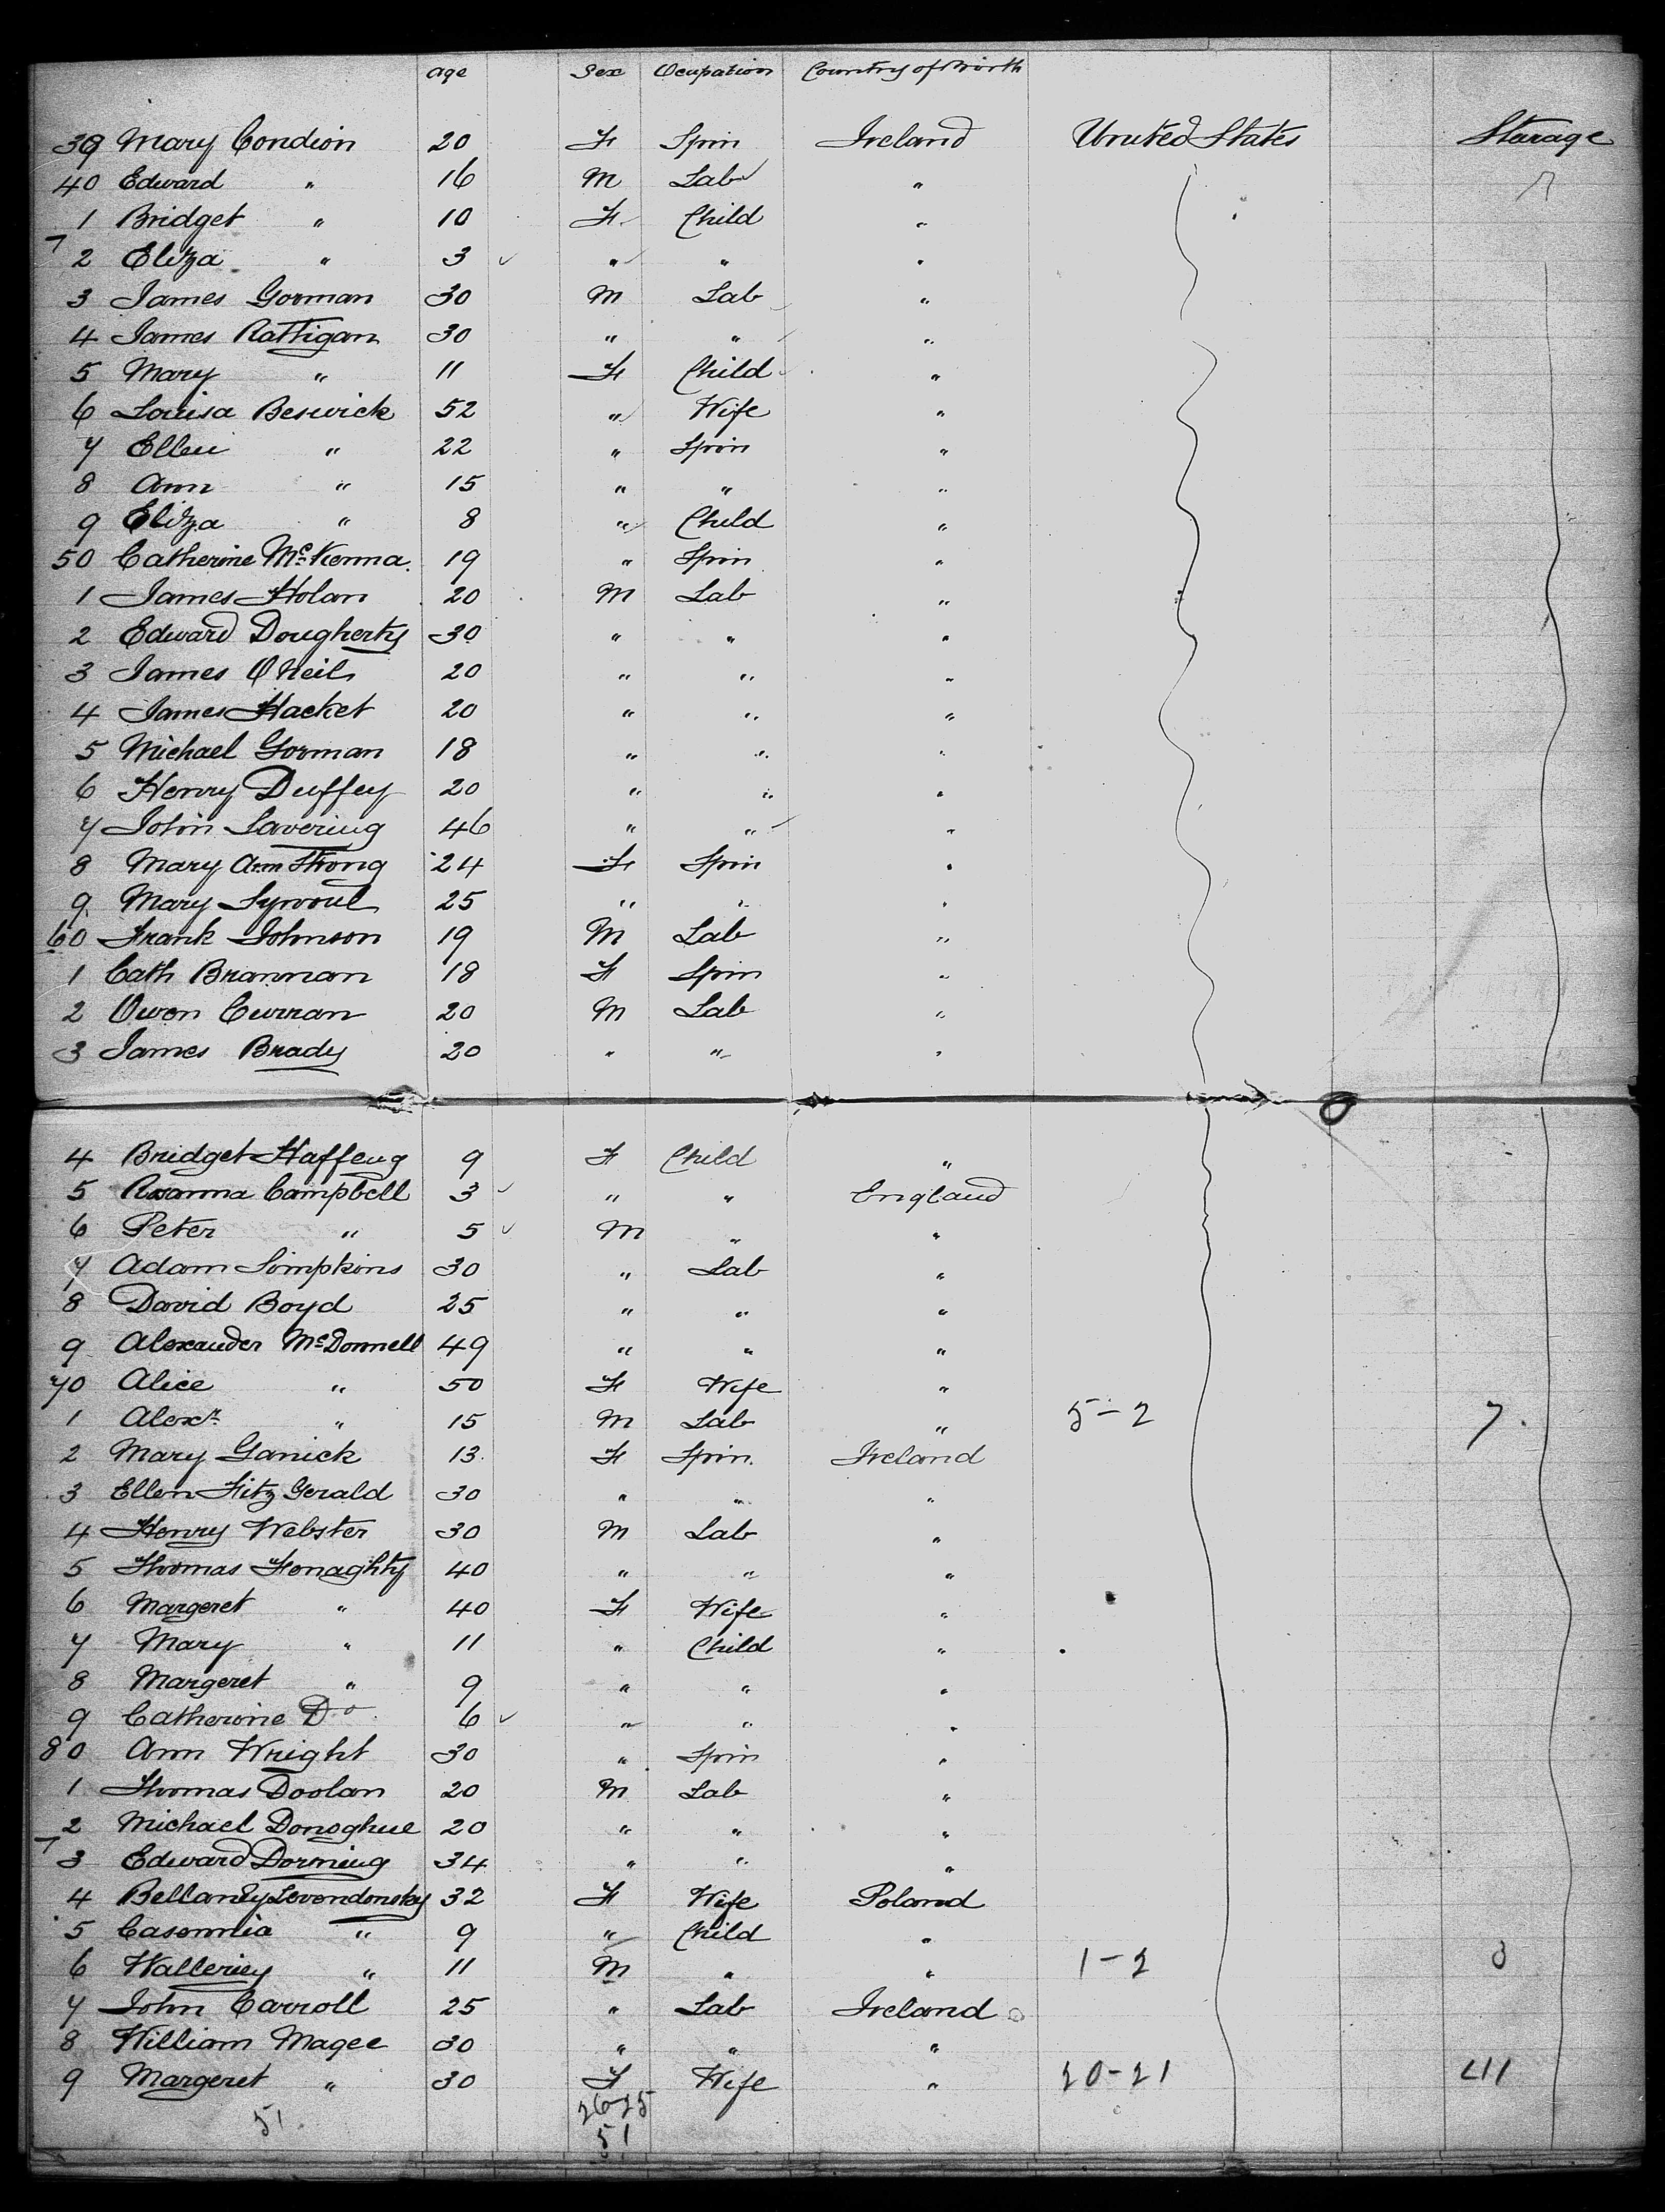 age Sex Ocupation Country of Birth
39 Mary Condion 20 F Spin Ireland United States Starage
40 Edward " 16 M Lab "
1 Bridget " 10 F. Child "
7
2 Eliza " 3 ✓ " " "
3 James Gorman 30 M Lab "
4 James Rattigan 30 " " "
5 Mary " 11 F Child "
6 Louisa Beswick 52 " Wife "
7 Ellen " 22 " Spin "
8 Ann " 15 " " "
9 Eliza " 8 " Child "
50 Catherine McKenna 19 " Spin "
1 James Holan 20 M Lab "
2 Edward Dougherty 30 " " "
3 James O Neil 20 " " "
4 James Hacket 20 " " "
5 Michael Gorman 18 " " "
6 Henry Duffey 20 " " "
7 John Lavering 46 " " "
8 Mary Armstrong 24 F Spin "
9 Mary 25 " " "
60 Frank Johnson 19 M Lab "
1 Cath Brannan 18 F Spin "
2 Owen Curran 20 M Lab "
3 James Brady 20 " " "
4 Bridget Haffeng 9 F Child "
5 Rosanna Campbell 3 ✓ " " England
6 Peter " 5 ✓ M " "
7 Adam Simpkins 30 " Lab "
8 David Boyd 25 " " "
9 Alexander McDonnell 49 " " "
70 Alice " 50 F Wife "
1 Alexr " 15 M Lab " 5-2 7.
2 Mary Ganick 13 F Spin. Ireland
3 Ellen Fitz Gerald 30 " " "
4 Henry Webster 30 M Lab "
5 Thomas Fenaghty 40 " " "
6 Margeret " 40 F Wife "
7 Mary " 11 " Child "
8 Margeret " 9 " " "
9 Catherine Do 6 ✓ " " "
80 Ann Wright 30 " Spin "
1 Thomas Doolan 20 M Lab "
2 Michael Donoghue 20 " " "
7
3 Edward Dorning 34 " " "
4 Bellandy Levendonsky 32 F Wife Poland
5 Casomnia " 9 " Child "
6 Walleriey " 11 M " " 1-2 3
7 John Carroll 25 " Lab Ireland
8 William Magee 30 " " "
9 Margeret " 30 F Wife " 20-21 41
51 26-25
51